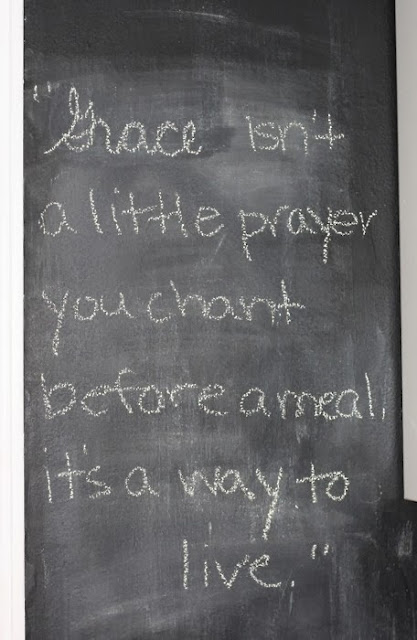 "Grace isn't
a little prayer
you chant
before a meal,
it's a way to
live."